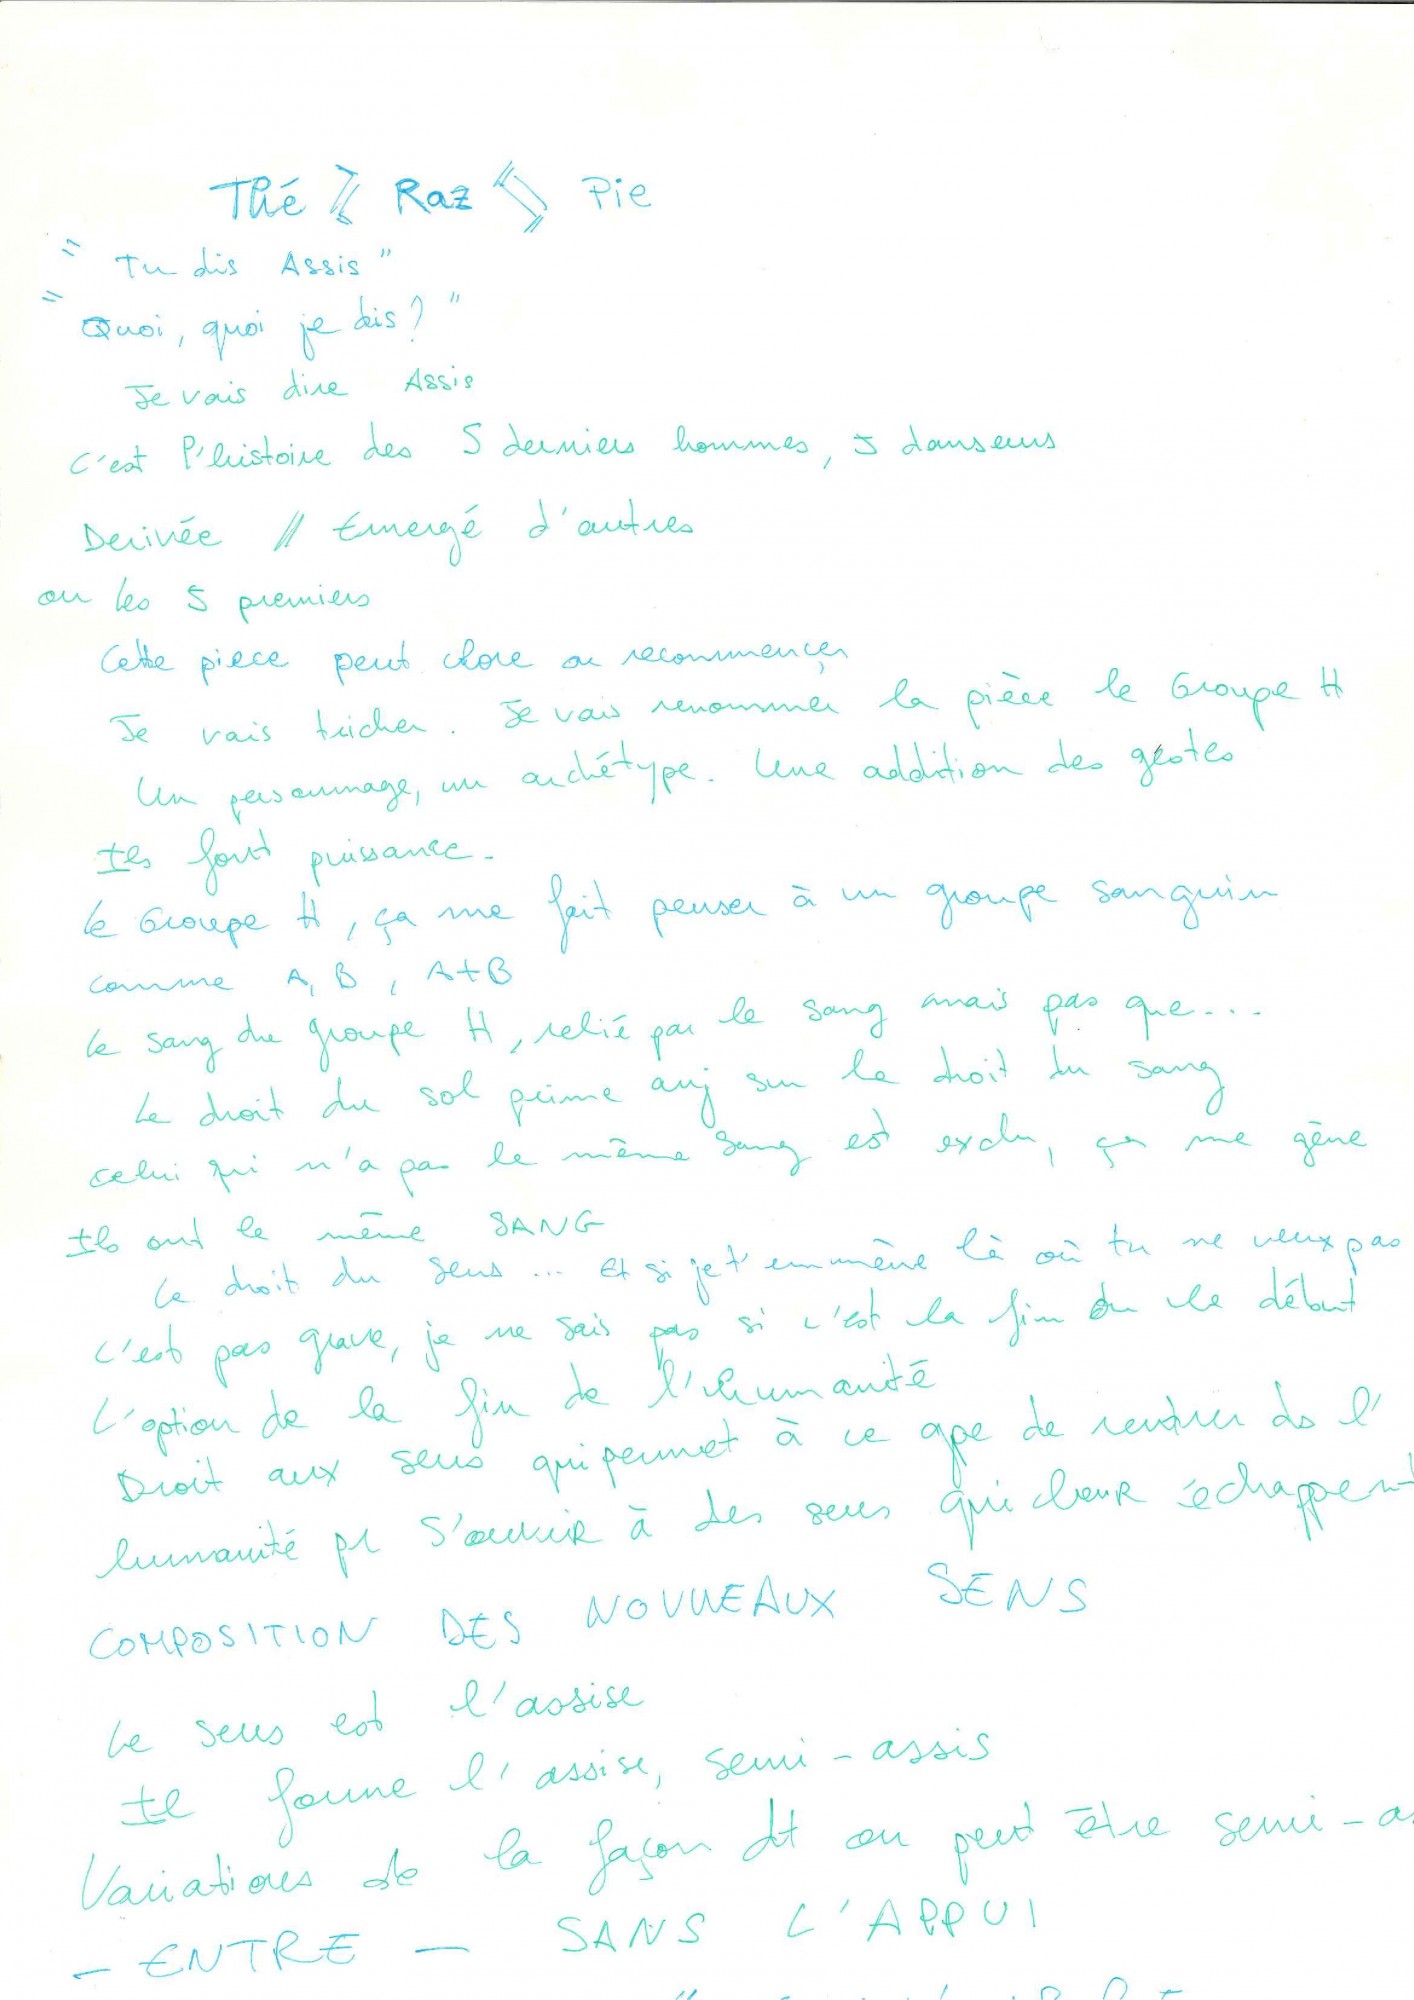 Thé // Raz // Pie
" Tu dis Assis "
" Quoi, quoi je dis ? "
Je vais dire Assis
C'est l'histoire des 5 derniers hommes, 5 danseurs
Derivée // Emergé d'autres
ou les 5 premiers
Cette piece peut clore ou recommencer
Je vais tricher. Je vais renommer la pièce le Groupe H
Un personnage, un archétype. Une addition des gestes
Ils font puissance.
Le Groupe H, ça me fait penser à un groupe sanguin
comme A, B, A+B
Le sang du groupe H, relié par le sang mais pas que...
Le droit du sol prime auj sur le droit du sang
celui qui n'a pas le même sang est exclu, ça me gêne
Ils ont le même SANG
Le droit du sens ... Et si je t'emmène là où tu ne veux pas
C'est pas grave, je ne sais pas si c'est la fin ou le début
L'option de la fin de l'humanité
Droit aux sens qui permet à ce gpe de rentrer ds l'
humanité pr s'ouvrir à des sens qui leur échappent
COMPOSITION DES NOUVEAUX SENS
Le sens est l'assise
Il forme l'assise, semi-assis
Variations de la façon dt on peut être semi-a
- ENTRE - SANS L'APPUI